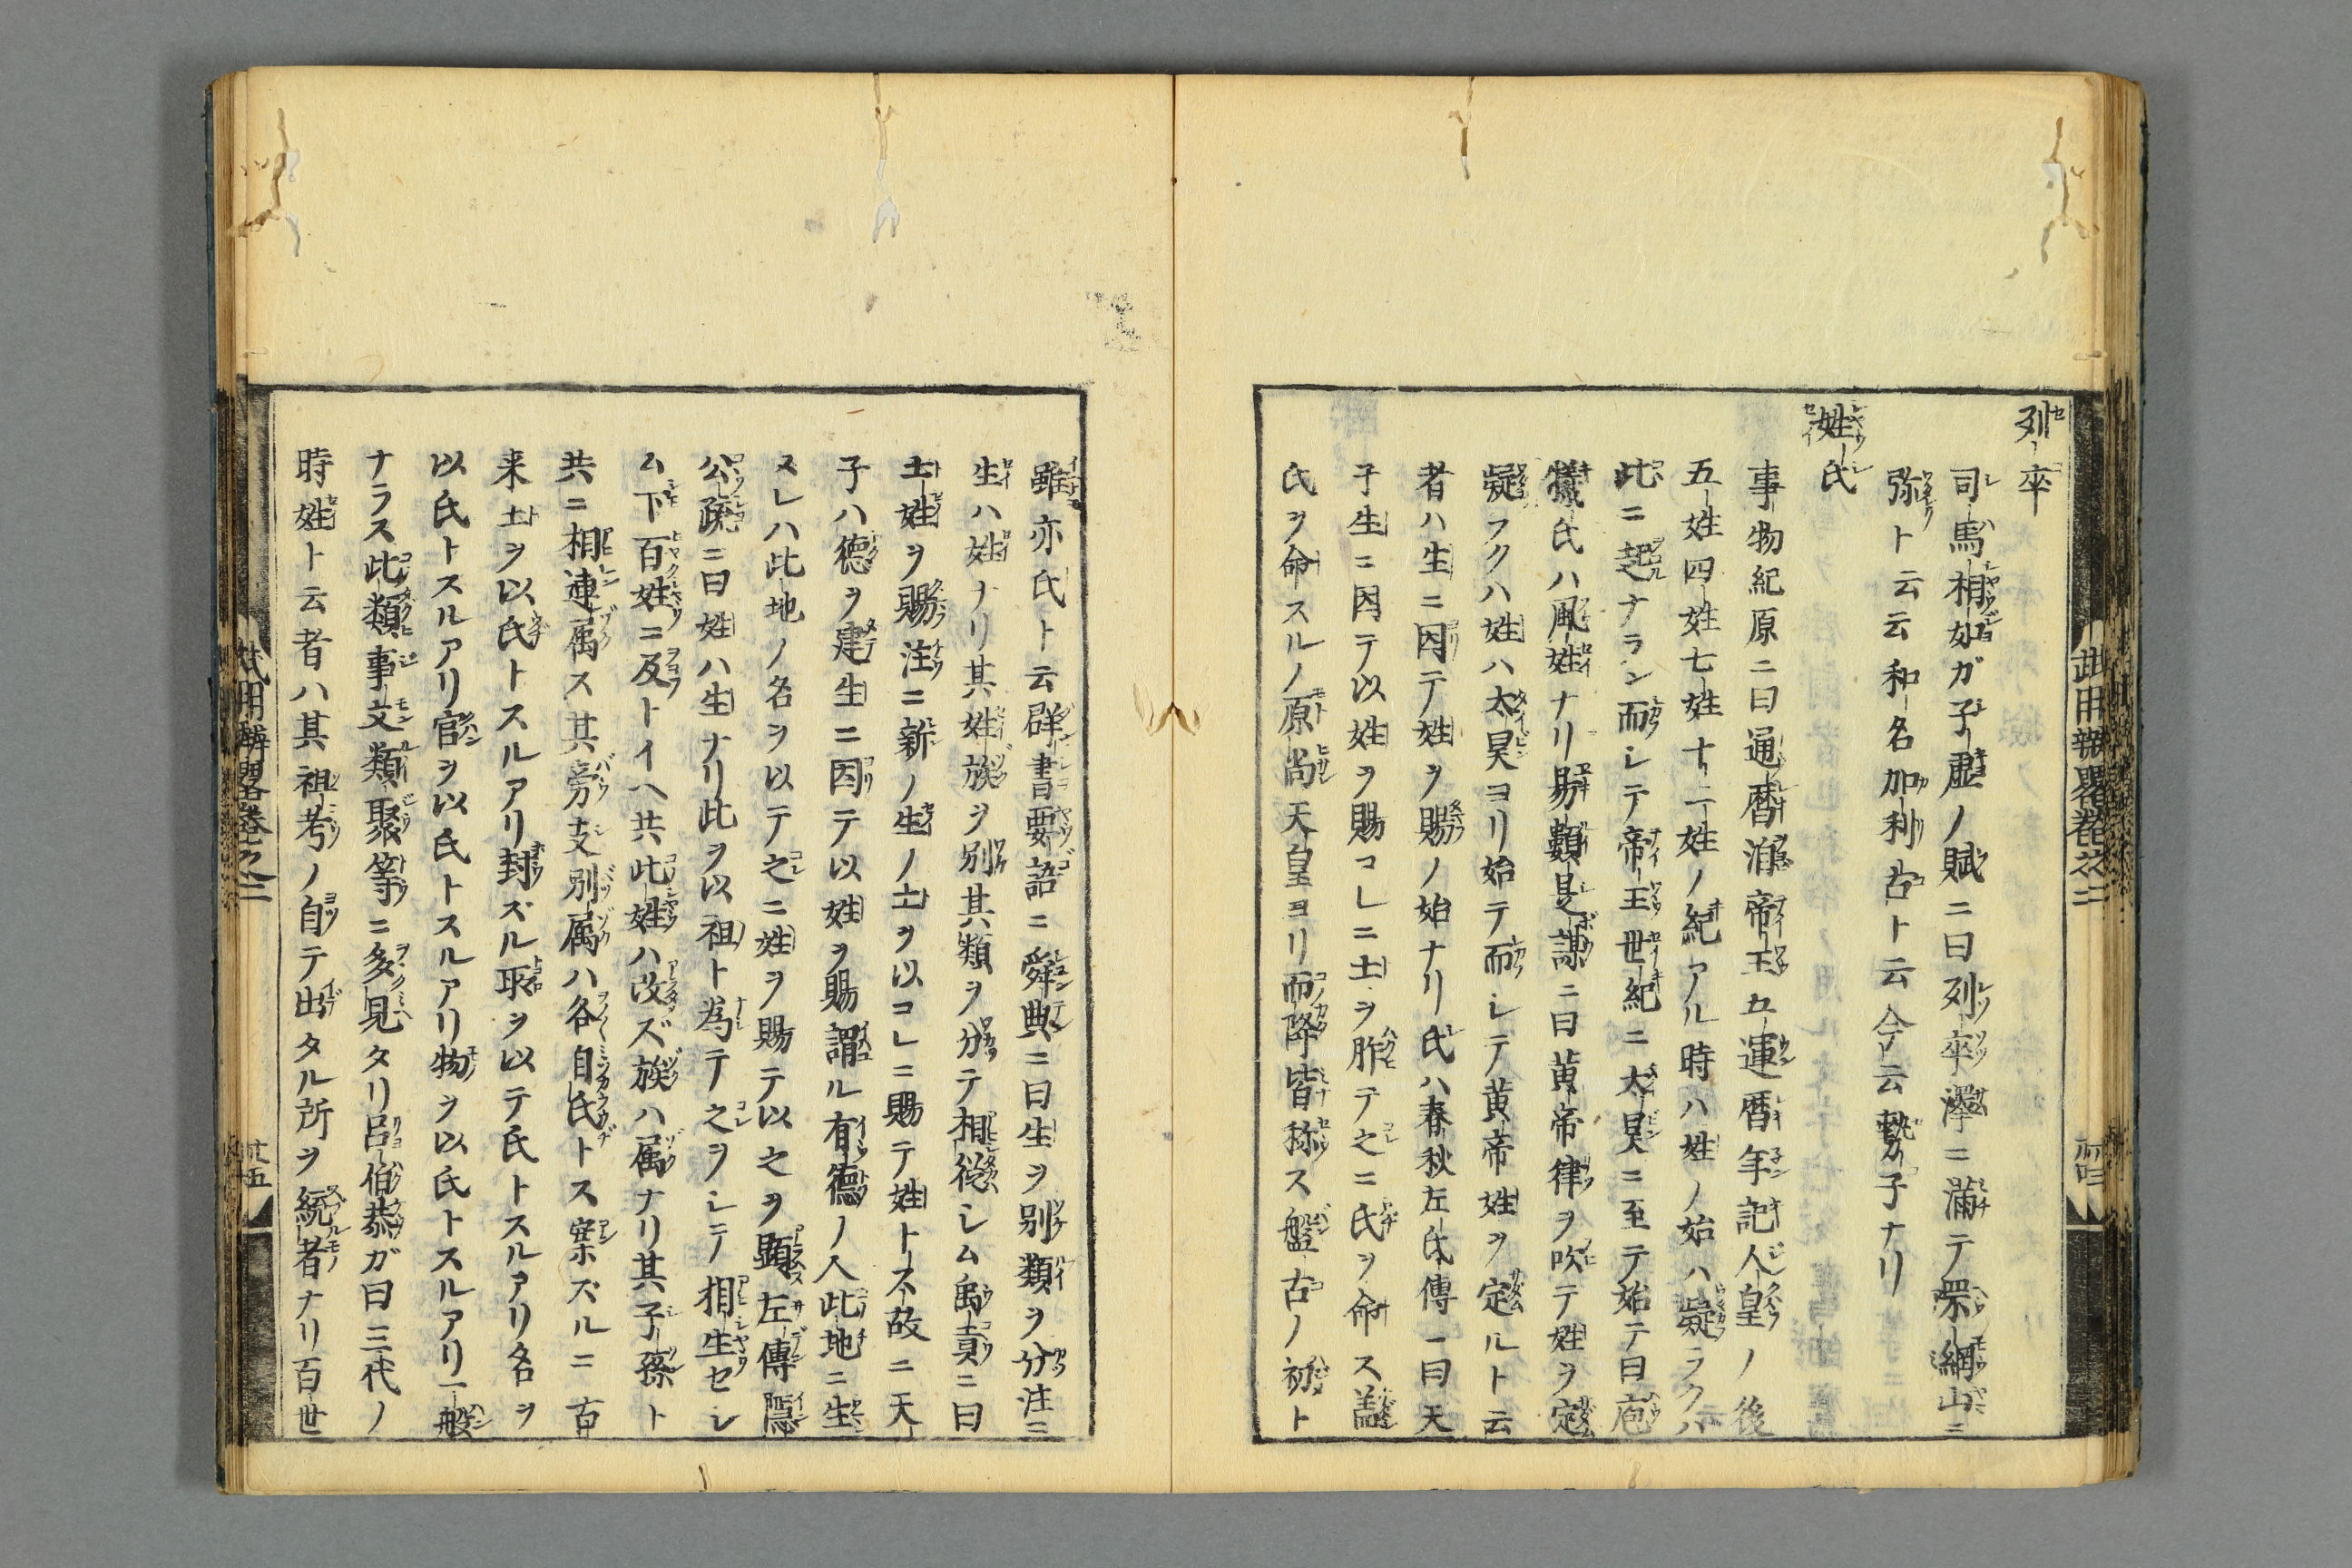 列卒
司馬相如ガ子虚ノ賦ニ曰列卒澤ニ滿テ罘網山ニ
弥ト云云和名加利古ト云今云勢子ナリ
姓氏
事物紀原ニ曰通暦淮帝王五運暦年記人皇ノ後
五姓四姓七姓十二姓ノ紀アル時ハ姓ノ始ハ疑ラクハ
此ニ起ナラン而シテ帝王世紀ニ太昊ニ至テ始テ曰庖
犧氏ハ風姓ナリ易類是謀ニ曰黄帝律ヲ吹テ姓ヲ定
疑フクハ姓ハ太昊ヨリ始テ而シテ黄帝姓ヲ定ルト云
者ハ生ニ因テ姓ヲ賜ノ始ナリ氏ハ春秋左氏傳ニ曰天
子生ニ因テ以姓ヲ賜コレニ土ヲ胙テ之ニ氏ヲ命ス蓋
氏ヲ命スルノ原尚天皇ヨリ而降皆称ス盤古ノ初ト
雖亦氏ト云群書要語ニ舜典ニ曰生ヲ別類ヲ分注ニ
生ハ姓ナリ其姓族ヲ別其類ヲ分テ相從シム禹貢ニ曰
土姓ヲ賜注ニ新ノ生ノ土ヲ以コレニ賜テ姓トス故ニ天
子ハ徳ヲ建生ニ因テ以姓ヲ賜謂ル有徳ノ人此地ニ生
ヌレハ此地ノ名ヲ以テ之ニ姓ヲ賜テ以之ヲ顕左傳隠
公疏ニ曰姓ハ生ナリ此ヲ以祖ト為テ之ヲシテ相生セシ
ム下百姓ニ及トイヘ共此姓ハ改ズ族ハ属ナリ其子孫ト
共ニ相連属ス其旁支別属ハ各自氏トス案ズルニ古
来土ヲ以氏トスルアリ封ズル所ヲ以テ氏トスルアリ名ヲ
以氏トスルアリ官ヲ以氏トスルアリ物ヲ以氏トスルアリ一般
ナラス此類事文類聚等ニ多見タリ呂伯恭ガ曰三代ノ
時姓ト云者ハ其祖考ノ自テ出タル所ヲ統者ナリ百世